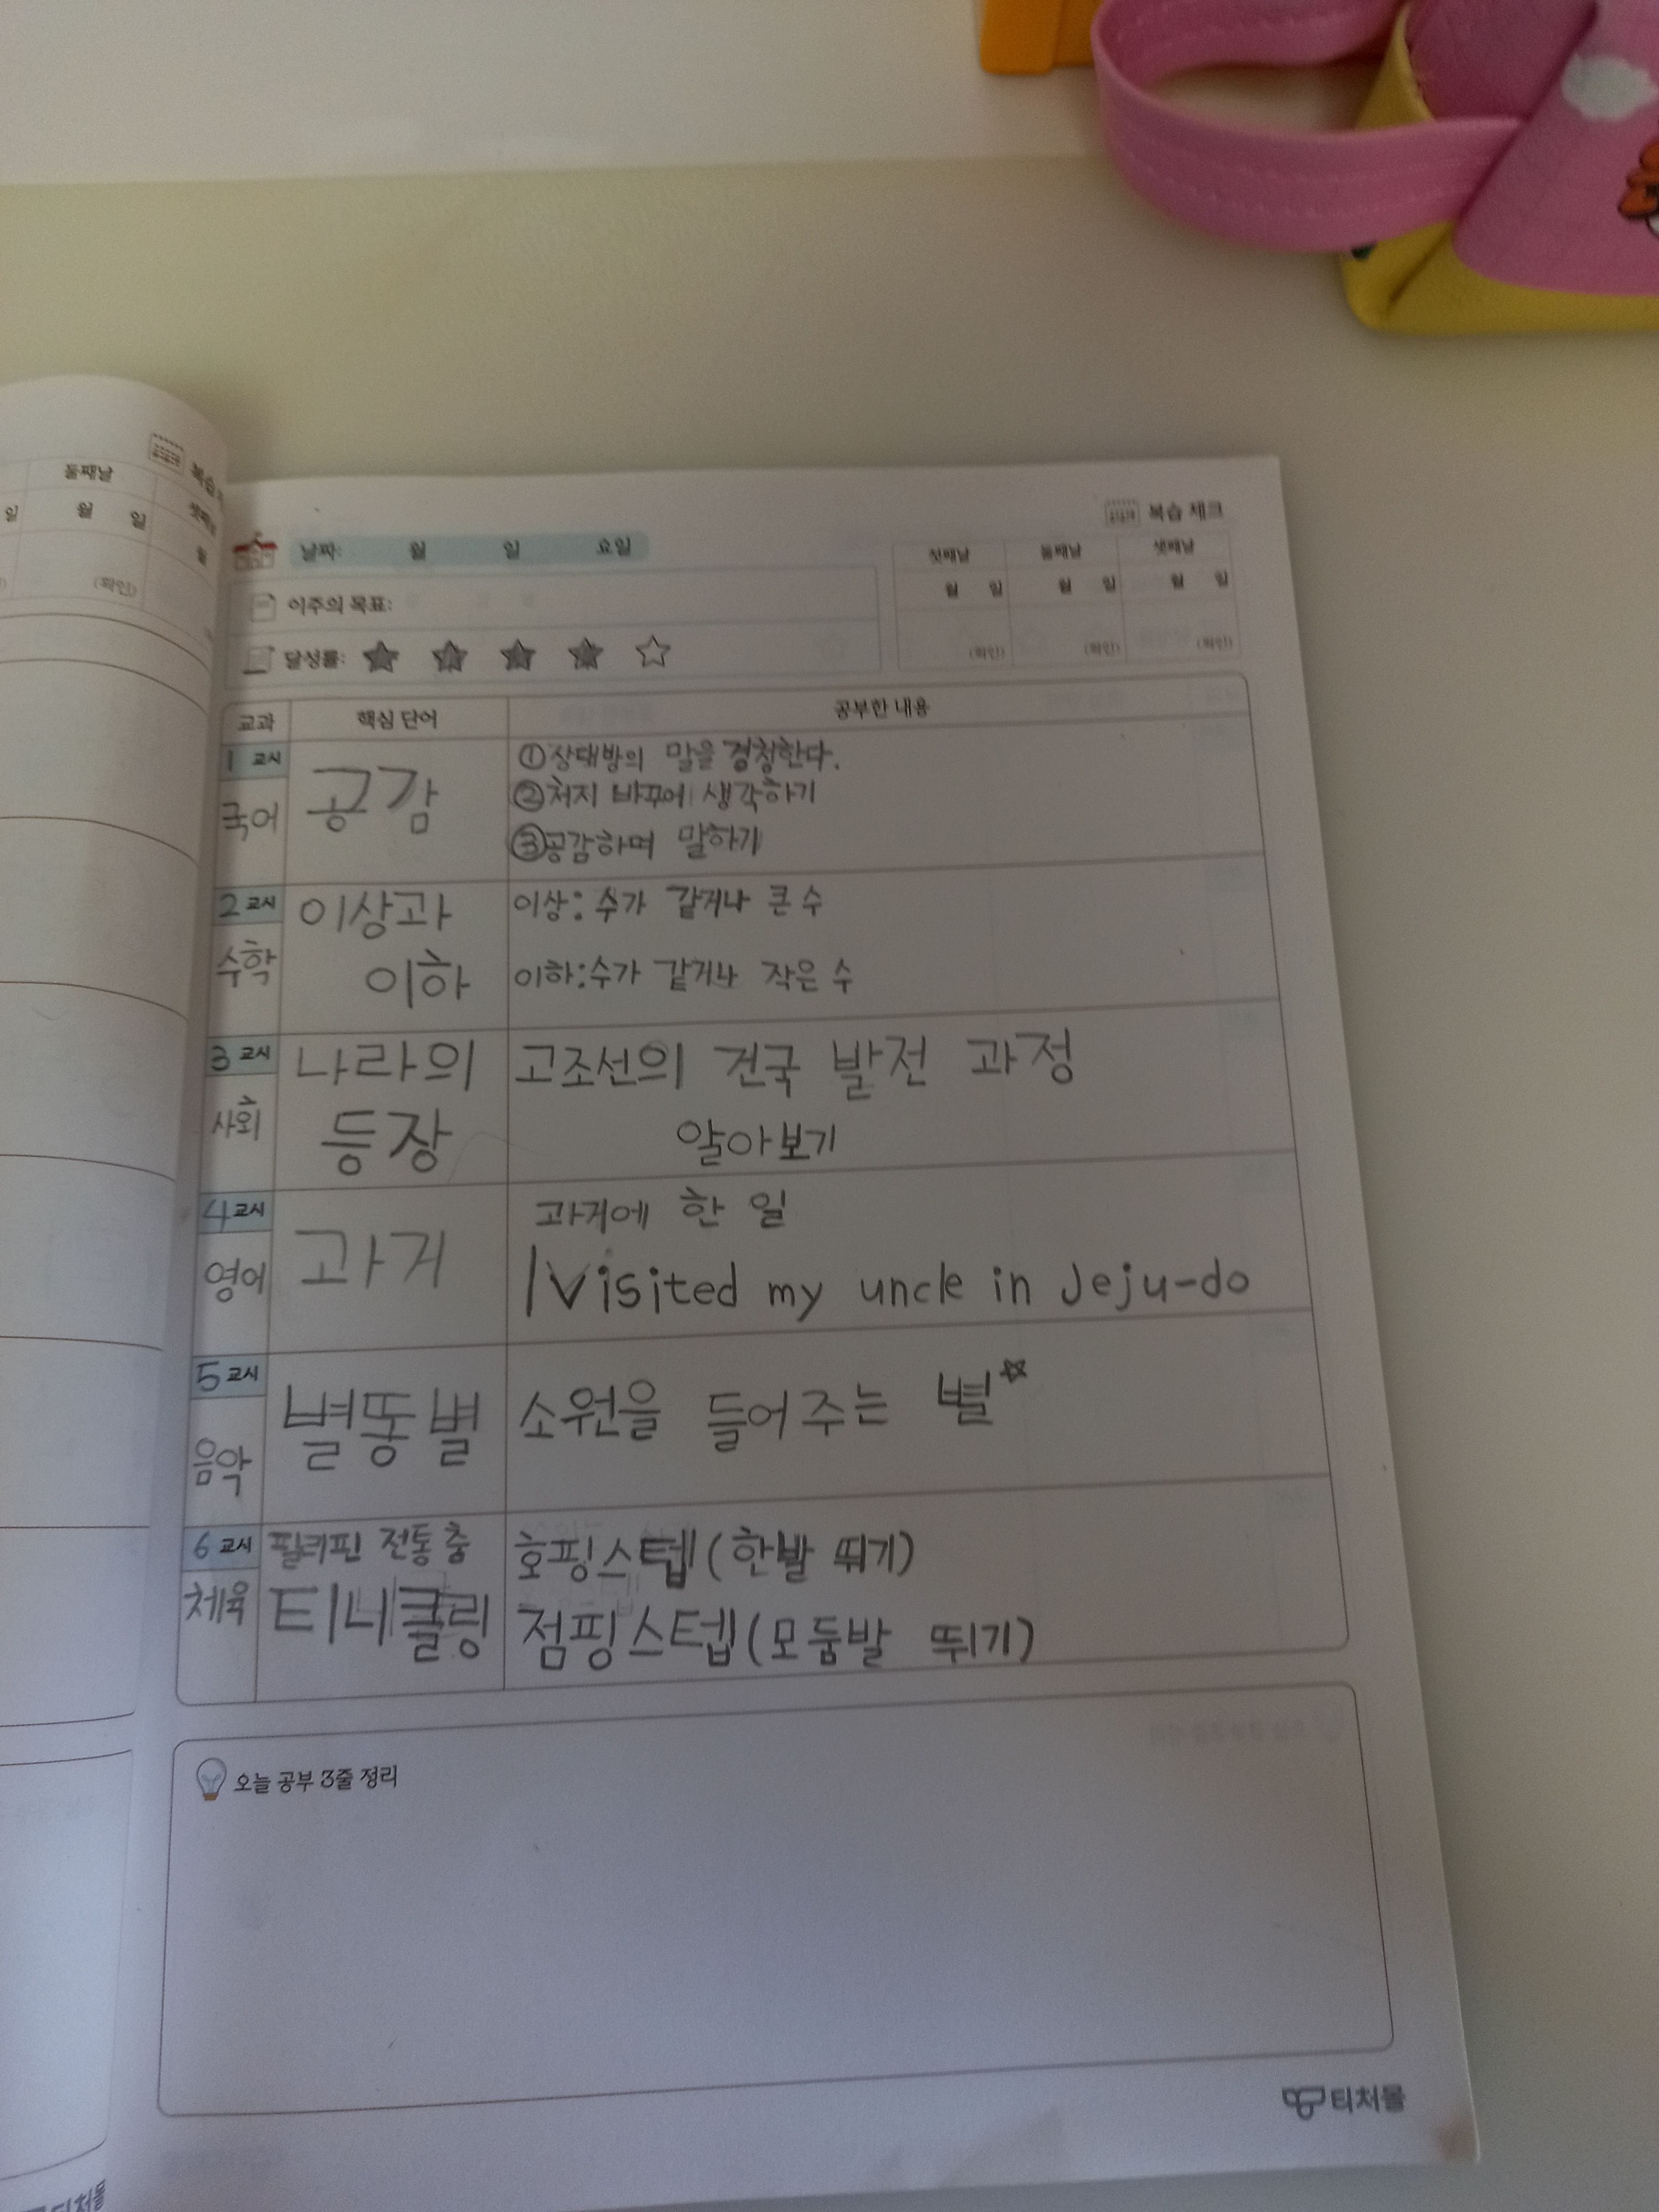 둘째날
월 일
(확인)
일
복습
셋째날
월
복습 체크
날짜: 월 일 요일
첫째날 둘째날 셋째날
월 일 월 일 월 일
(확인) (확인) (확인)
이주의 목표:
달성률:
교과 핵심 단어 공부한 내용
1 교시
국어
공감
①상대방의 말을 경청한다.
②처지 바꾸어 생각하기
③공감하며 말하기
2 교시
수학
이상과
이하
이상: 수가 같거나 큰 수
이하:수가 같거나 작은 수
3 교시
사회
나라의
등장
고조선의 건국 발전 과정
알아보기
4 교시
영어
과거
과거에 한 일
I Visited my uncle in Jeju-do
5 교시
음악
별똥별
소원을 들어주는 별
6 교시
체육
필리핀 전통 춤
티니클링
호핑스텝(한발 뛰기)
점핑스텝(모둠발 뛰기)
오늘 공부 3줄 정리
티처몰
티처몰